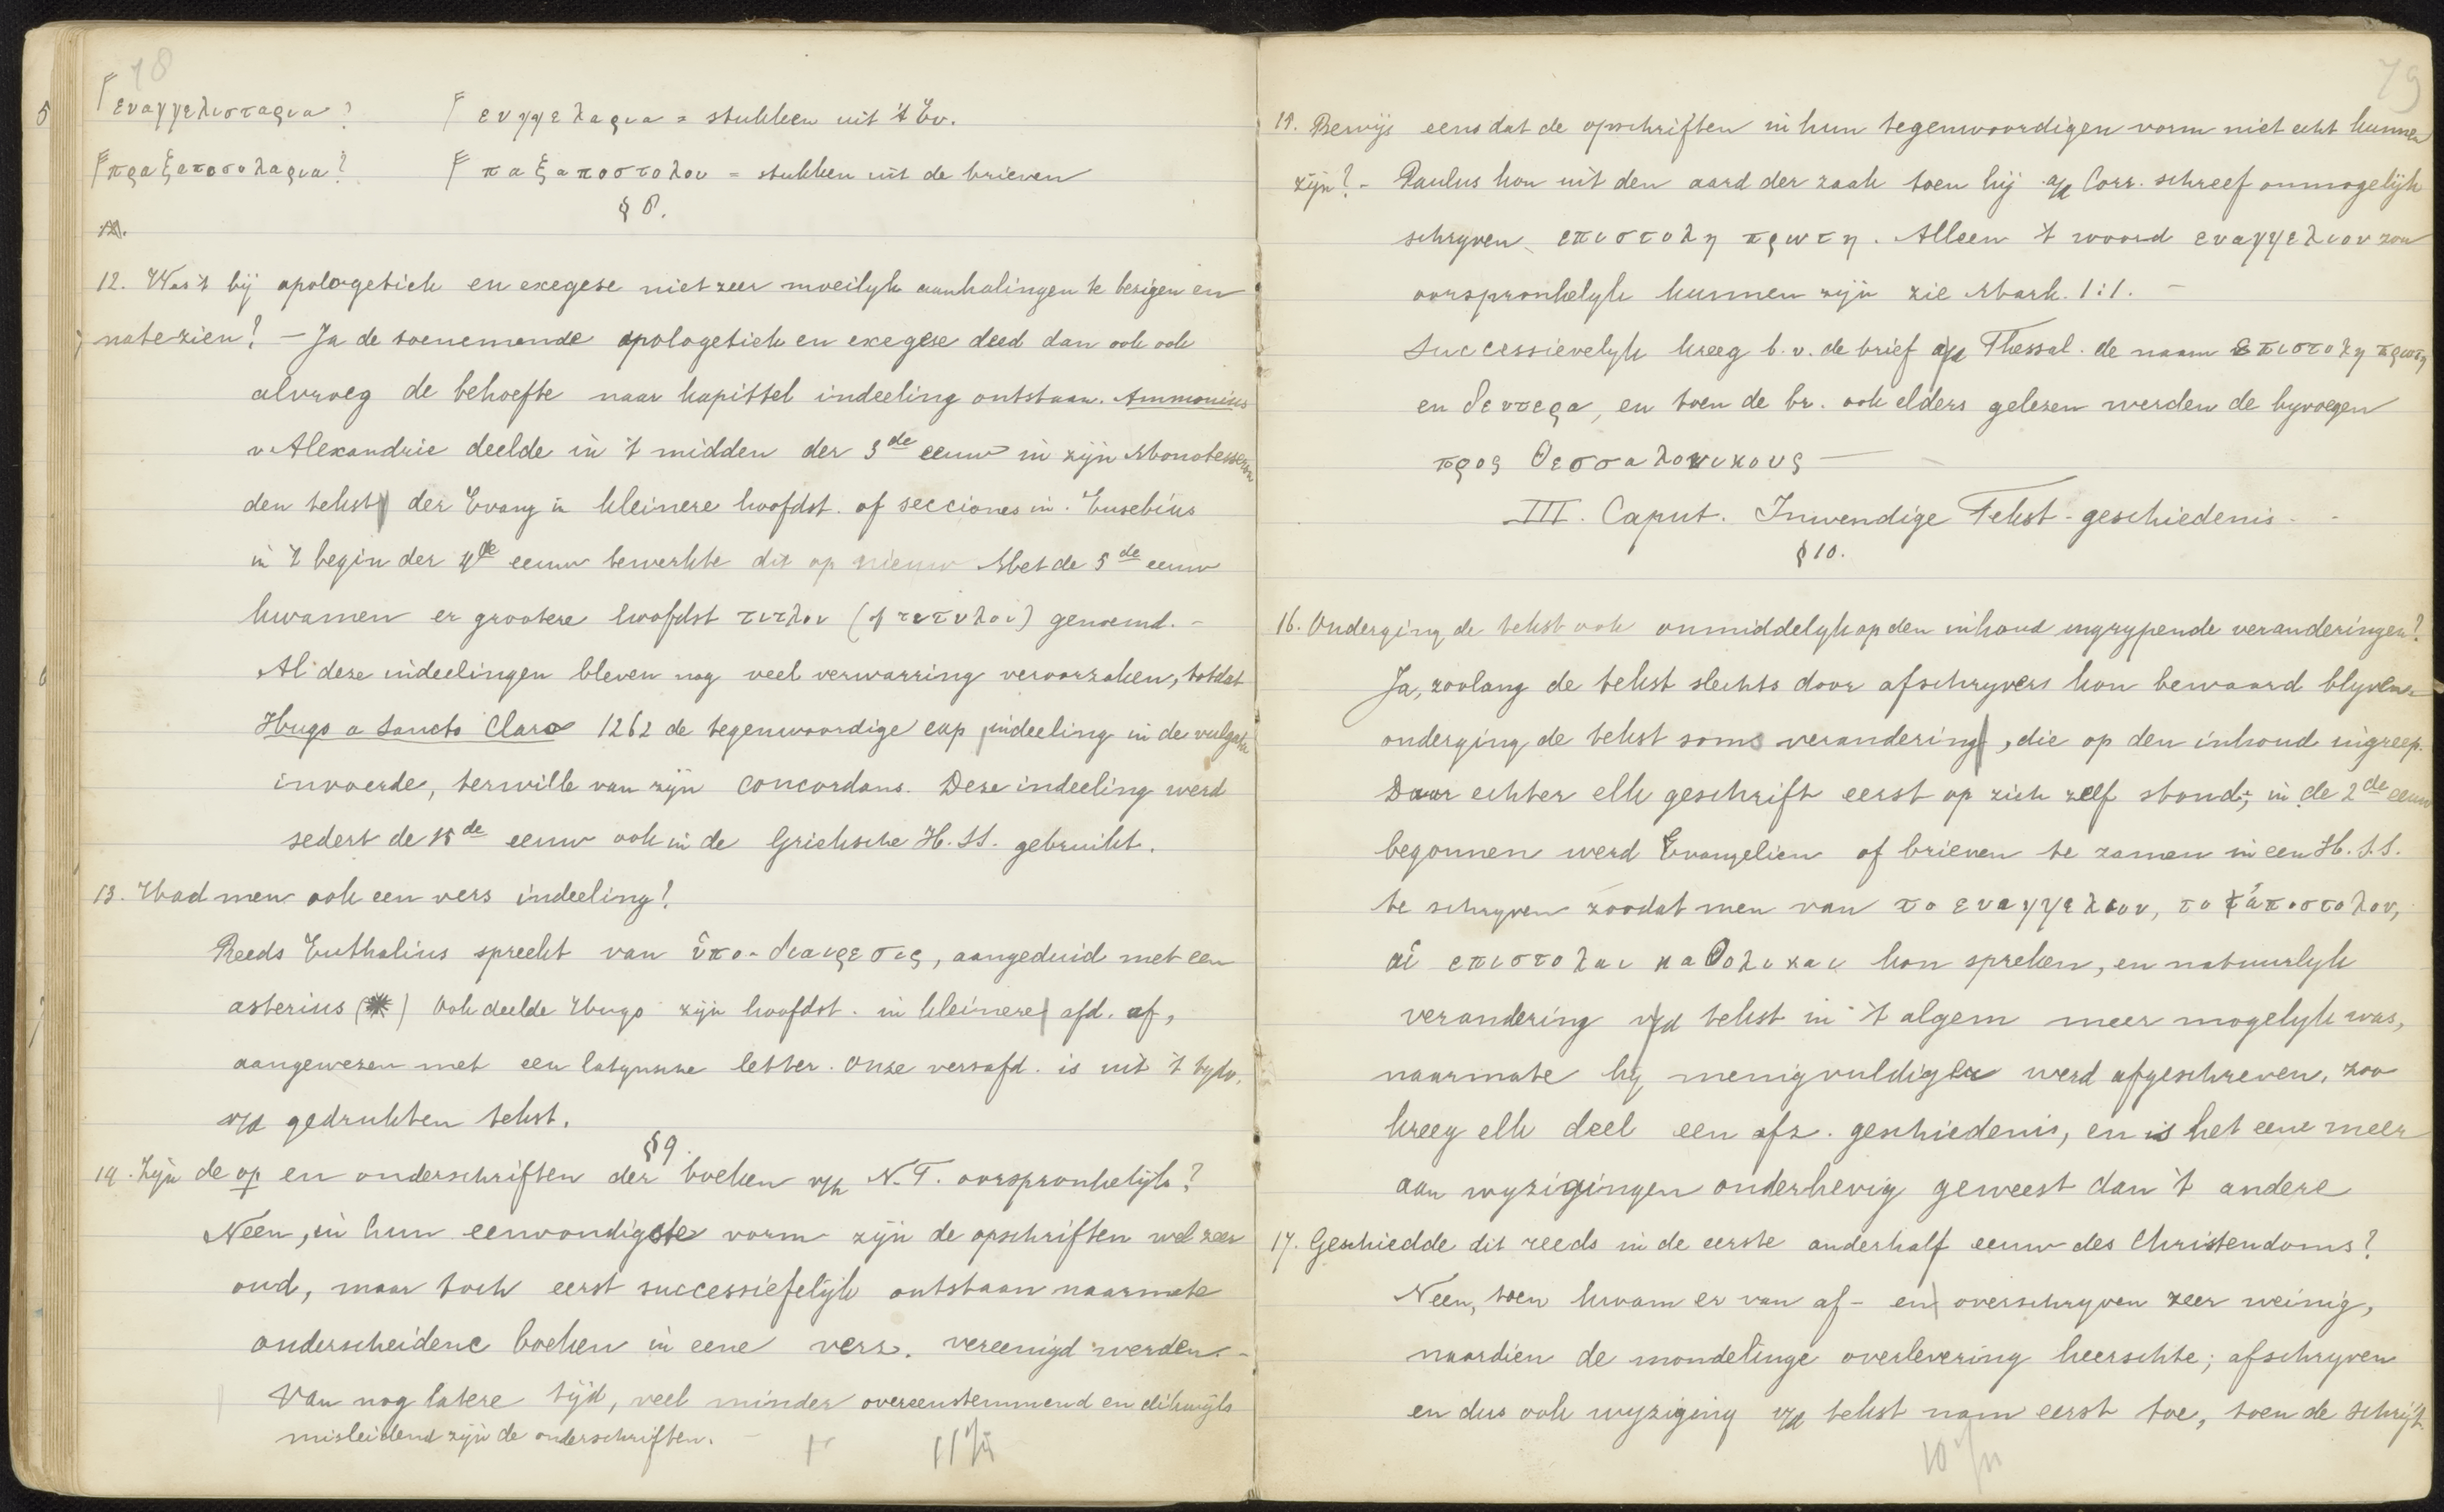 78
5
Γ εναγγελισταρια?
Γ ενγγελαρια = stukken uit 't Ev.
Γ πραξαποσολαρια?
Γ παξαποστολου = stukken uit de brieven
§ 8.
12. Was't bij apologetiek en exegese niet zeer moeilyk aanhalingen te bezigen en
na te zien? — Ja de toenemende apologetiek en exegese deed dan ook ook
alvroeg de behoefte naar kapittel indeeling ontstaan. Ammonius
v Alexandrie deelde in 't midden der 3de eeuw in zijn Monotesseron
den tekst der Evang in kleinere hoofdst. of secciones in. Eusebius
in 't begin der 4de eeuw bewerkte dit op nieuw Met de 5de eeuw
kwamen er grootere hoofdst τιτλοι (of τετυλοι) genoemd. –
Al deze indeelingen bleven nog veel verwarring veroorzaken, totdat
Hugo a Sancto Claro 1262 de tegenwoordige cap indeeling in de vulgata
invoerde, terwille van zijn concordans. Deze indeeling werd
sedert de 15de eeuw ook in de Grieksche H.SS. gebruikt.
13. Had men ook een vers indeeling?
Reeds Euthalius spreekt van ὑπο-διαιρεσις, aangeduid met een
asterius (*) Ook deelde Hugo zijn hoofdst. in kleinere afd. af,
aangewezen met een latynsche letter. Onze versafd. is uit 't tydv.
v/d gedrukten tekst.
§9.
14. Zijn de op en onderschriften der boeken v/h N.T. oorspronkelijk?
Neen, in hun eenvoudigste vorm zijn de opschriften wel zeer
oud, maar toch eerst successiefelijk ontstaan naarmate
onderscheidene boeken in eene verz. vereenigd werden. –
Van nog latere tijd, veel minder overeenstemmend en dikwijls
misleidend zijn de onderschriften. –
79
15. Bewijs eens dat de opschriften in hun tegenwoordigen vorm niet echt kunnen
zijn? – Paulus kon uit den aard der zaak toen hij a/d Corr. schreef onmogelijk
schryven επιστολη πρωτη. Alleen 't woord εναγγελιον zou
oorspronkelyk kunnen zijn zie Mark. 1:1. –
Successievelyk kreeg b.v. de brief a/d Thessal. de naam επιστολη πρωτη
en δευτερα, en toen de br. ook elders gelezen werden de byvoegen
προς Θεσσαλονικους —
III. Caput. Inwendige Tekst-geschiedenis. -
§10.
16. Onderging de tekst ook onmiddelyk op den inhoud ingrypende veranderingen?
Ja, zoolang de tekst slechts door afschryvers kon bewaard blyven
onderging de tekst soms verandering, die op den inhoud ingreep.
Daar echter elk geschrift eerst op zich zelf stond; in de 2de eeuw
begonnen werd Evangelien of brieven te zamen in een H.S.S.
te schryven zoodat men van το εναγγελιον, το ἀποστολον,
αἱ επιστολαι καθολικαι kon spreken, en natuurlyk
verandering v/d tekst in 't algem meer mogelyk was,
naarmate hy menigvuldiger werd afgeschreven, zoo
kreeg elk deel een afz. geschiedenis, en is het eene meer
aan wyzigingen onderhevig geweest dan 't andere
17. Geschiedde dit reeds in de eerste anderhalf eeuw des Christendoms?
Neen, toen kwam er van af- en overschryven zeer weinig,
naardien de mondelinge overlevering heerschte; afschryven
en dus ook wyziging v/d tekst nam eerst toe, toen de schrift